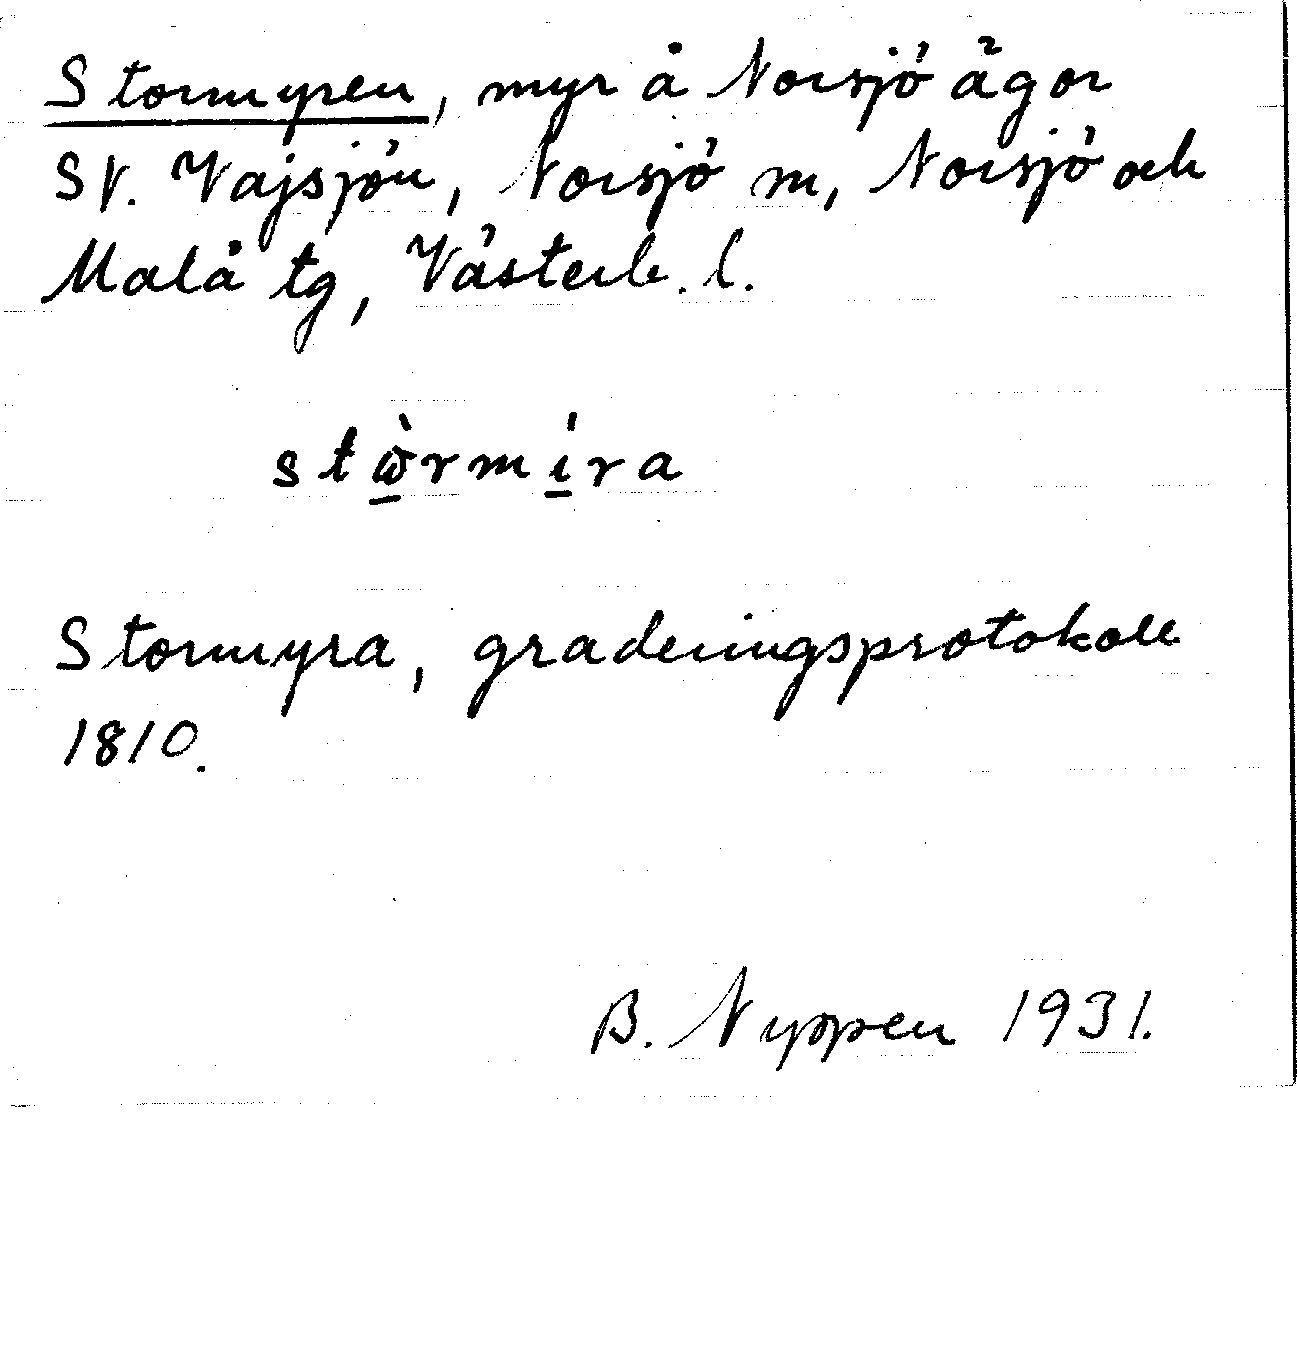 Stormyren, myr å Norsjö ägor
SV. Vajsjön, Norsjö m, Norsjö och
Malå tg, Västerb. l.
stὼ̱rmí̱ra
Stormyra, graderingsprotokoll
1810.
B. Nyppen 1931.